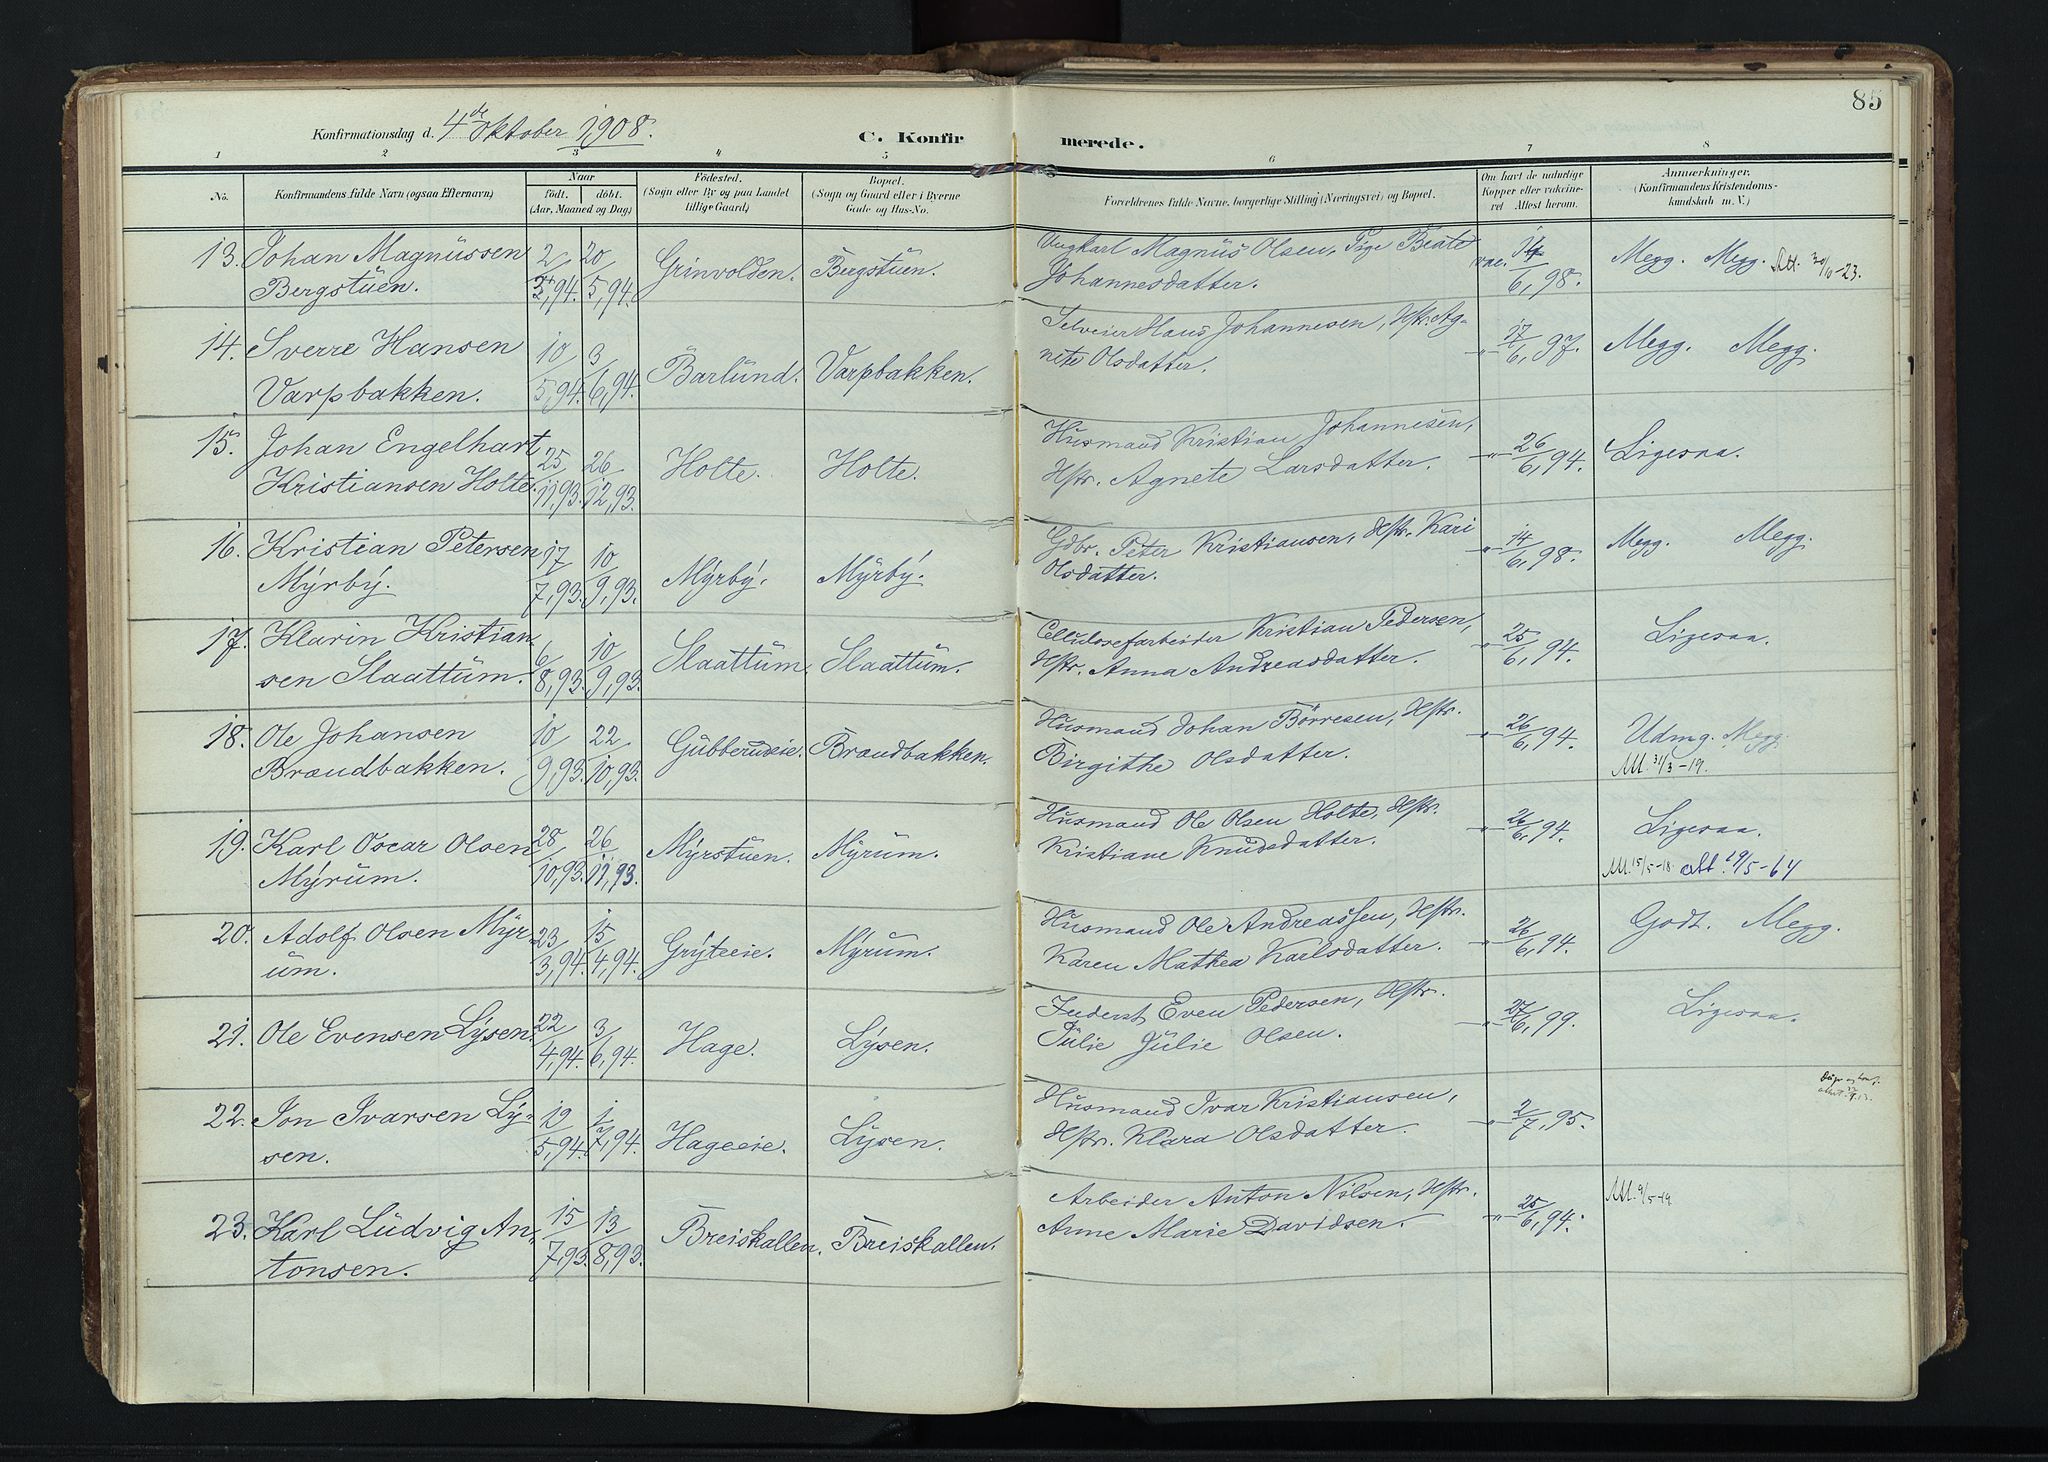 85
Konfirmationsdag d. 4de Oktober 1908. C. Konfirmerede.
1 2 3 4 5 6 7 8
No. Konfirmandens fulde Navn (ogsaa Efternavn) Naar födt. döbt. (Aar, Maaned og Dag) Födested. (Sogn eller By og paa Landet tillige Gaard) Bopæl. (Sogn og Gaard eller i Byerne Gade og Hus-No. Forældrenes fulde Navne, borgerlige Stilling (Næringsvei) og Bopæl. Om havt de naturlige Kopper eller vaccineret Attest herom. Anmærkninger. (Konfirmandens Kristendomskundskab m. V.)
13. Johan Magnussen 2 20 Grinvolden. Bergstuen. Ungkarl Magnus Olsen, Pige Beate vac. 14 Megg. Megg. Att. 30/10-23.
Bergstuen. 3,94. 5,94. Johannesdatter. 6,98.
14. Sverre Hansen 10 3 Barlund. Varpbakken. Selveier Hans Johannesen, Hstr. Ag- 17 Megg. Megg.
Varpbakken. 5,94. 6,94. nete Olsdatter. -"- 6,97.
15. Johan Engelhart 25 26 Holte. Holte. Husmand Kristian Johannesen, -"- 26 Ligesaa.
Kristiansen Holte. 11,93. 12,93. Hstr. Agnete Larsdatter. 6,94.
16. Kristian Petersen 17 10 Myrby. Myrby. Gdbr. Peter Kristiansen, Hstr. Kari -"- 14 Megg. Megg.
Myrby. 7,93. 9,93. Olsdatter. 6,98.
17. Klarin Kristian- 6 10 Slaattum. Slaattum. Cellulosefarbeider Kristian Pedersen, -"- 25 Ligesaa.
sen Slaattum. 8,93. 9,93. Hstr. Anna Andreasdatter. 6,94.
18. Ole Johansen 10 22 Gubberudeie. Brandbakken. Husmand Johan Börresen, Hstr. -"- 26 Udm.g. Megg.
Brandbakken. 9,93. 10,93. Birgithe Olsdatter. 6,94. Att. 31/3-19.
19. Karl Oscar Olsen 28 26 Myrstuen. Myrum. Husmand Ole Olsen Holte, Hstr. -"- 26 Ligesaa.
Myrum. 10,93. 11,93. Kristiane Knudsdatter. 6,94. Att. 15/5-18. Att. 29/5-64
20. Adolf Olsen Myr- 23 15 Gryteeie. Myrum. Husmand Ole Andreassen, Hstr. -"- 26 Godt. Megg.
um. 3,94. 4,94. Karen Mathea Karlsdatter. 6,94.
21. Ole Evensen Lysen. 22 3 Hage. Lysen. Inderst Even Pedersen, Hstr. -"- 27 Ligesaa.
4,94. 6,94. Julie Julie Olsen. 6,99.
22. Jon Ivarsen Ly- 12 1 Hageeie. Lysen. Husmand Ivar Kristiansen, -"- 2
sen. 5,94. 7,94. Hstr. Klara Olsdatter. 7,95.
23. Karl Ludvig An- 15 13 Breiskallen. Breiskallen. Arbeider Anton Nilsen, Hstr. -"- 25 Att. 9/5-19.
tonsen. 7,93. 8,93. Anne Marie Davidsen. 6,94.